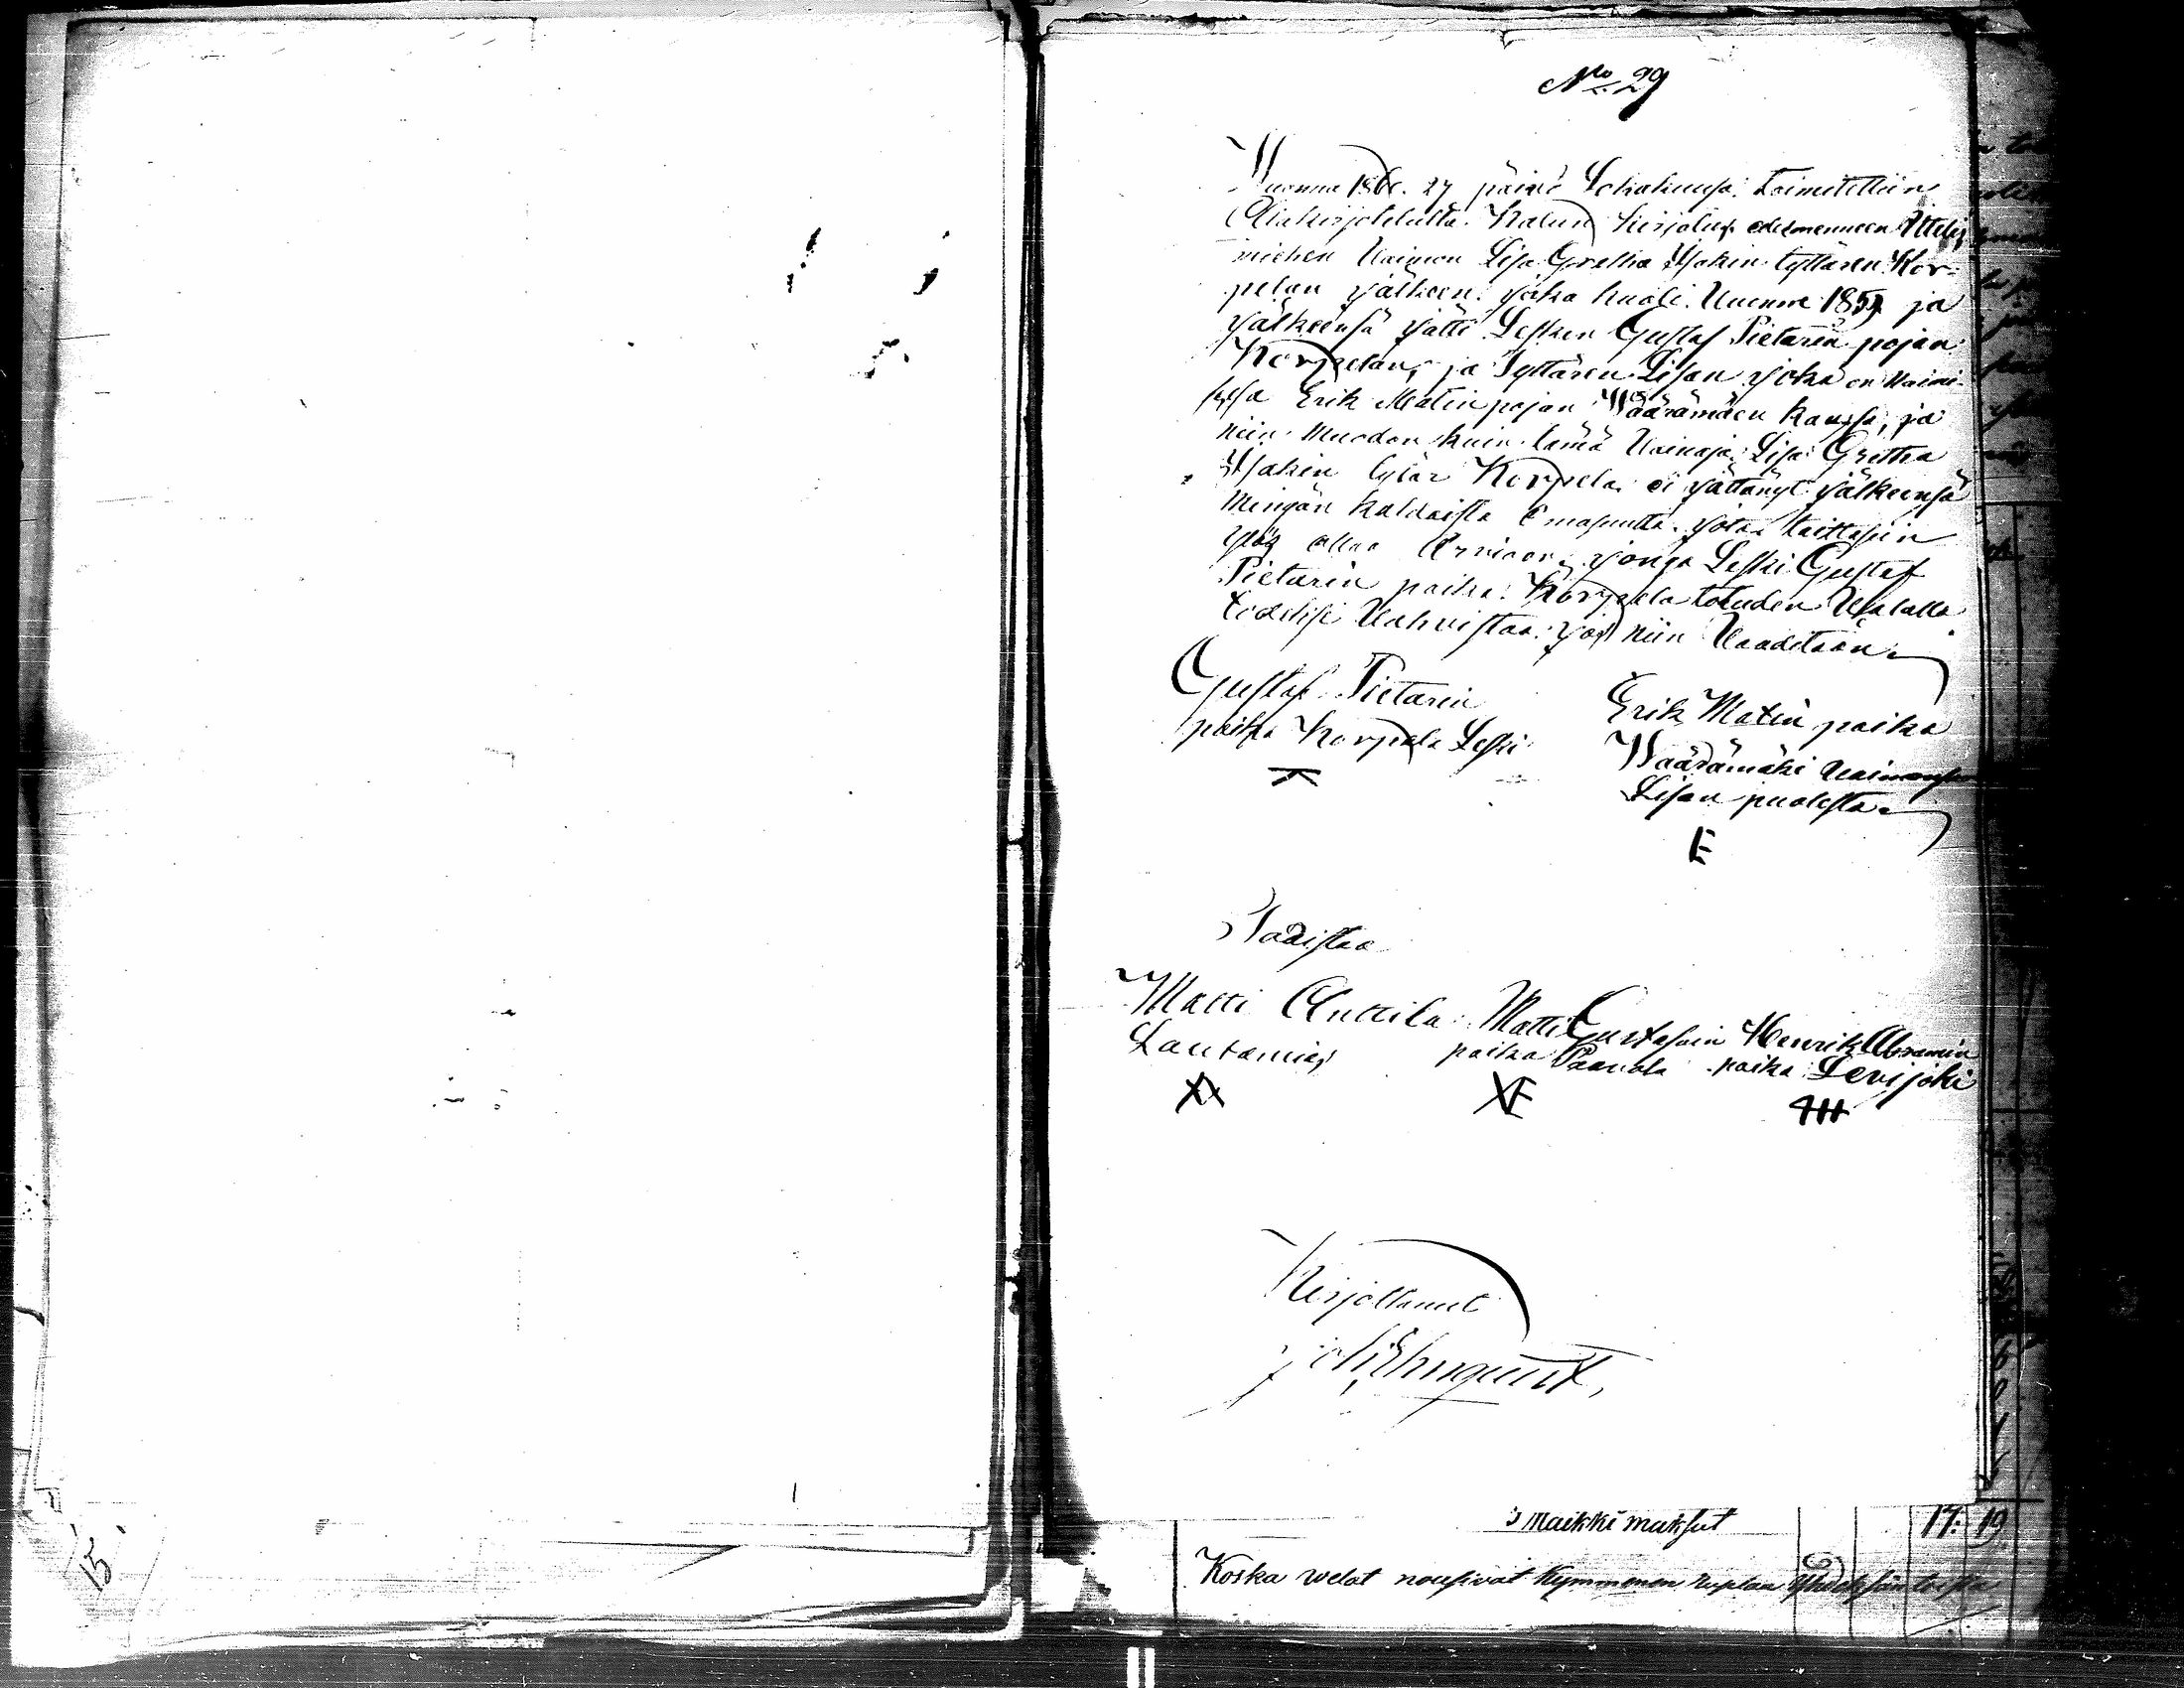 No 29
Wuonna 1860. 27 päivä Lokakuusa. toimitettiin
edesmenneen
miehen Vaimon Lisa Gretha Isakin tyttären Kor-
pelan jälkeen. joka kuoli. Vuonna 1859 ja
jälkeensä jätti Lesken Gustaf Pietarin pojan
Korpelan, ja Tyttären Lisan joka on Naimi-
sesa Erik Matin pojan Wäärämäen kanssa, ja
niin Muodon kuin tämä Vainaja Lisa Gretha
Isakin tytär Korpela ei jättänyt jälkeensä
Mingän kaldaista Omasuutta. jotaa taittasiin
ylös ottaa Arvioon, jonga Leski Gustaf
Pietarin poika Korpela totuden Walalla
todeksi Vahvistaa. jos niin Vaaditaan.
Gustaf Pietarin
poika Korpela Leski
Erik Matin poika
Wäärämäki Vaimonsa
Lisan puolesta.
E
Todistaa
Matti Anttila Matti Gustafsin Henrik Abramin
Lautamies poika Paavola poika Levijoki
Kirjoittanut
3 maikki maksut 17. 19
Koska welat nousivat Kymmenen ruplan Yhdeksän toista
15